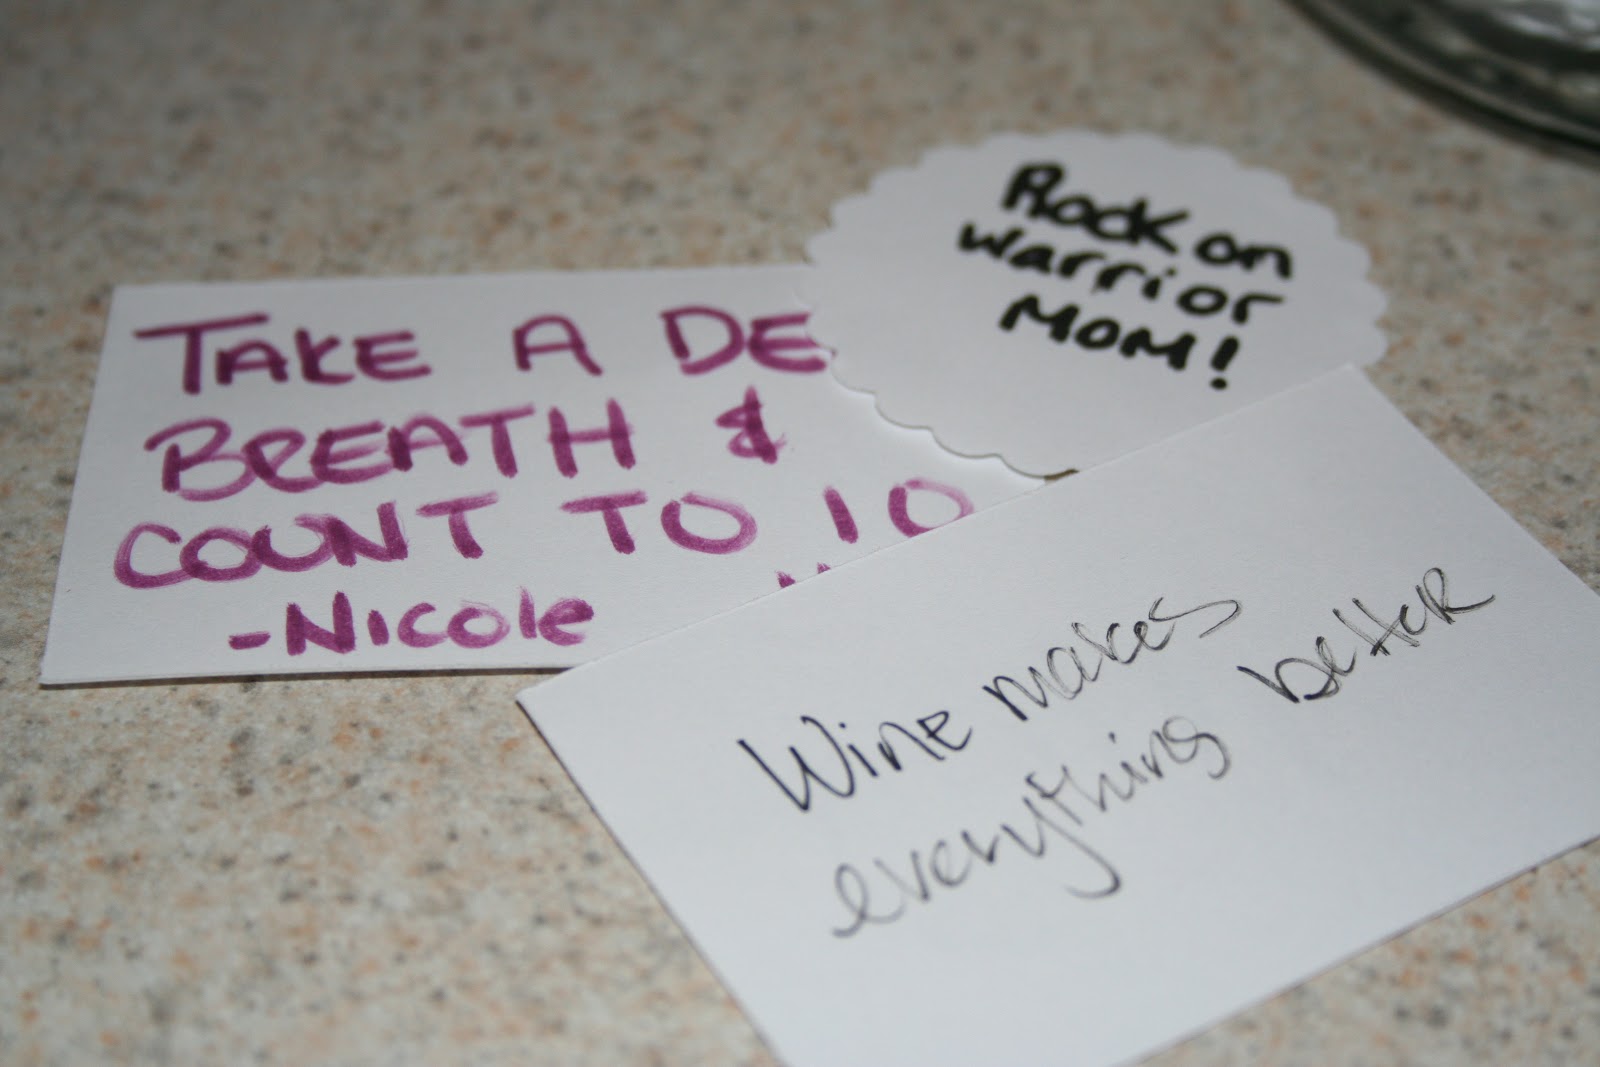 TAKE A DE
BREATH &
COUNT TO 10
-Nicole
Rock on
warrior
MOM!
Wine makes
everything better